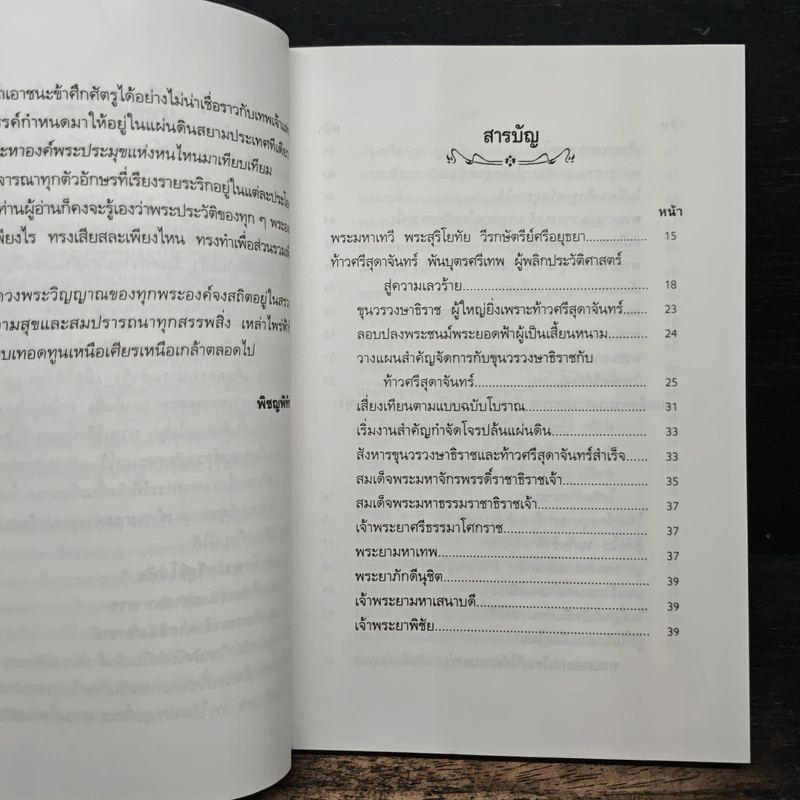 เอาชนะข้าศึกศัตรูได้อย่างไม่น่าเชื่อราวกับเทพเจ้า
รรค์กำหนดมาให้อยู่ในแผ่นดินสยามประเทศที่เดียว
ะหาองค์พระประมุขแห่งหนไหนมาเทียบเทียม
จารณาทุกตัวอักษรที่เรียงรายระริกอยู่ในแต่ละประโย
ท่านผู้อ่านก็คงจะรู้เองว่าพระประวัติของทุก ๆ พระอง
พียงไร ทรงเสียสละเพียงไหน ทรงทำเพื่อส่วนรวม
ดวงพระวิญญาณของทุกพระองค์จงสถิตอยู่ในสรว
วามสุขและสมปรารถนาทุกสรรพสิ่ง เหล่าไพร่ฟ้า
บเทอดทูนเหนือเศียรเหนือเกล้าตลอดไป
พิชญพิทั
สารบัญ
หน้า
พระมหาเทวี พระสุริโยทัย วีรกษัตรีย์ศรีอยุธยา.................. 15
ท้าวศรีสุดาจันทร์ พันบุตรศรีเทพ ผู้พลิกประวัติศาสตร์
สู่ความเลวร้าย.................. 18
ขุนวรวงษาธิราช ผู้ใหญ่ยิ่งเพราะท้าวศรีสุดาจันทร์....... 23
ลอบปลงพระชนม์พระยอดฟ้าผู้เป็นเสี้ยนหนาม........... 24
วางแผนสำคัญจัดการกับขุนวรวงษาธิราชกับ
ท้าวศรีสุดาจันทร์.................. 25
เสี่ยงเทียนตามแบบฉบับโบราณ.................. 31
เริ่มงานสำคัญกำจัดโจรปล้นแผ่นดิน.................. 33
สังหารขุนวรวงษาธิราชและท้าวศรีสุดาจันทร์สำเร็จ...... 33
สมเด็จพระมหาจักรพรรดิ์ราชาธิราชเจ้า.................. 35
สมเด็จพระมหาธรรมราชาธิราชเจ้า.................. 37
เจ้าพระยาศรีธรรมาโศกราช.................. 37
พระยามหาเทพ.................. 37
พระยาภักดีนุชิต.................. 39
เจ้าพระยามหาเสนาบดี.................. 39
เจ้าพระยาพิชัย.................. 39